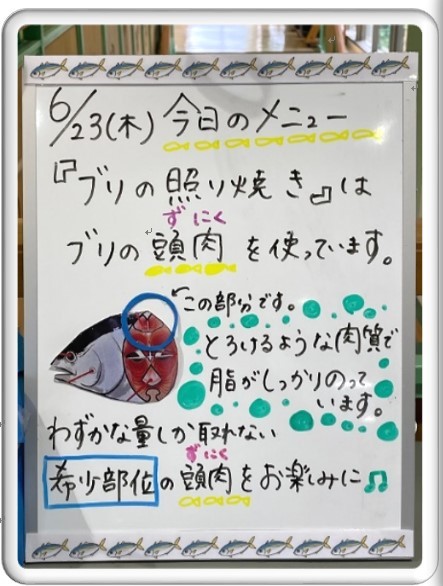 6/23(木)今日のメニュー
『ブリの照り焼き』は
ずにく
ブリの頭肉を使っています。
この部分です。
とろけるような肉質で
脂がしっかりのって
います。
わずかな量しか取れない
ずにく
希少部位の頭肉をお楽しみに♫